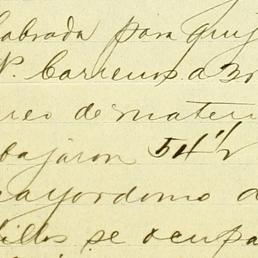 labrada para
P. Carreras a 30
reo de mater
bajaron 54 1/2
mayordomo d
illos se ocupa